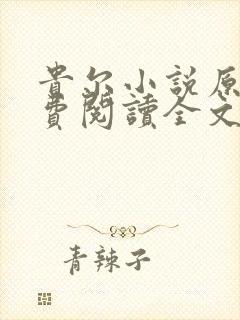 貴尔小説原
費閱讀全文
青辣子